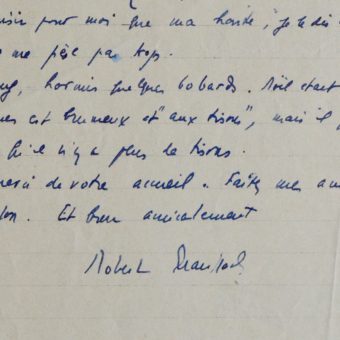 pour moi que ma honte, je le dis
me pèse pas trop.
hormis quelques bobards. Noël était
est brumeux et "aux tisons", mais il
qu'il n'y a plus de tisons.
de votre accueil. Faites mes
Et bien amicalement
Robert